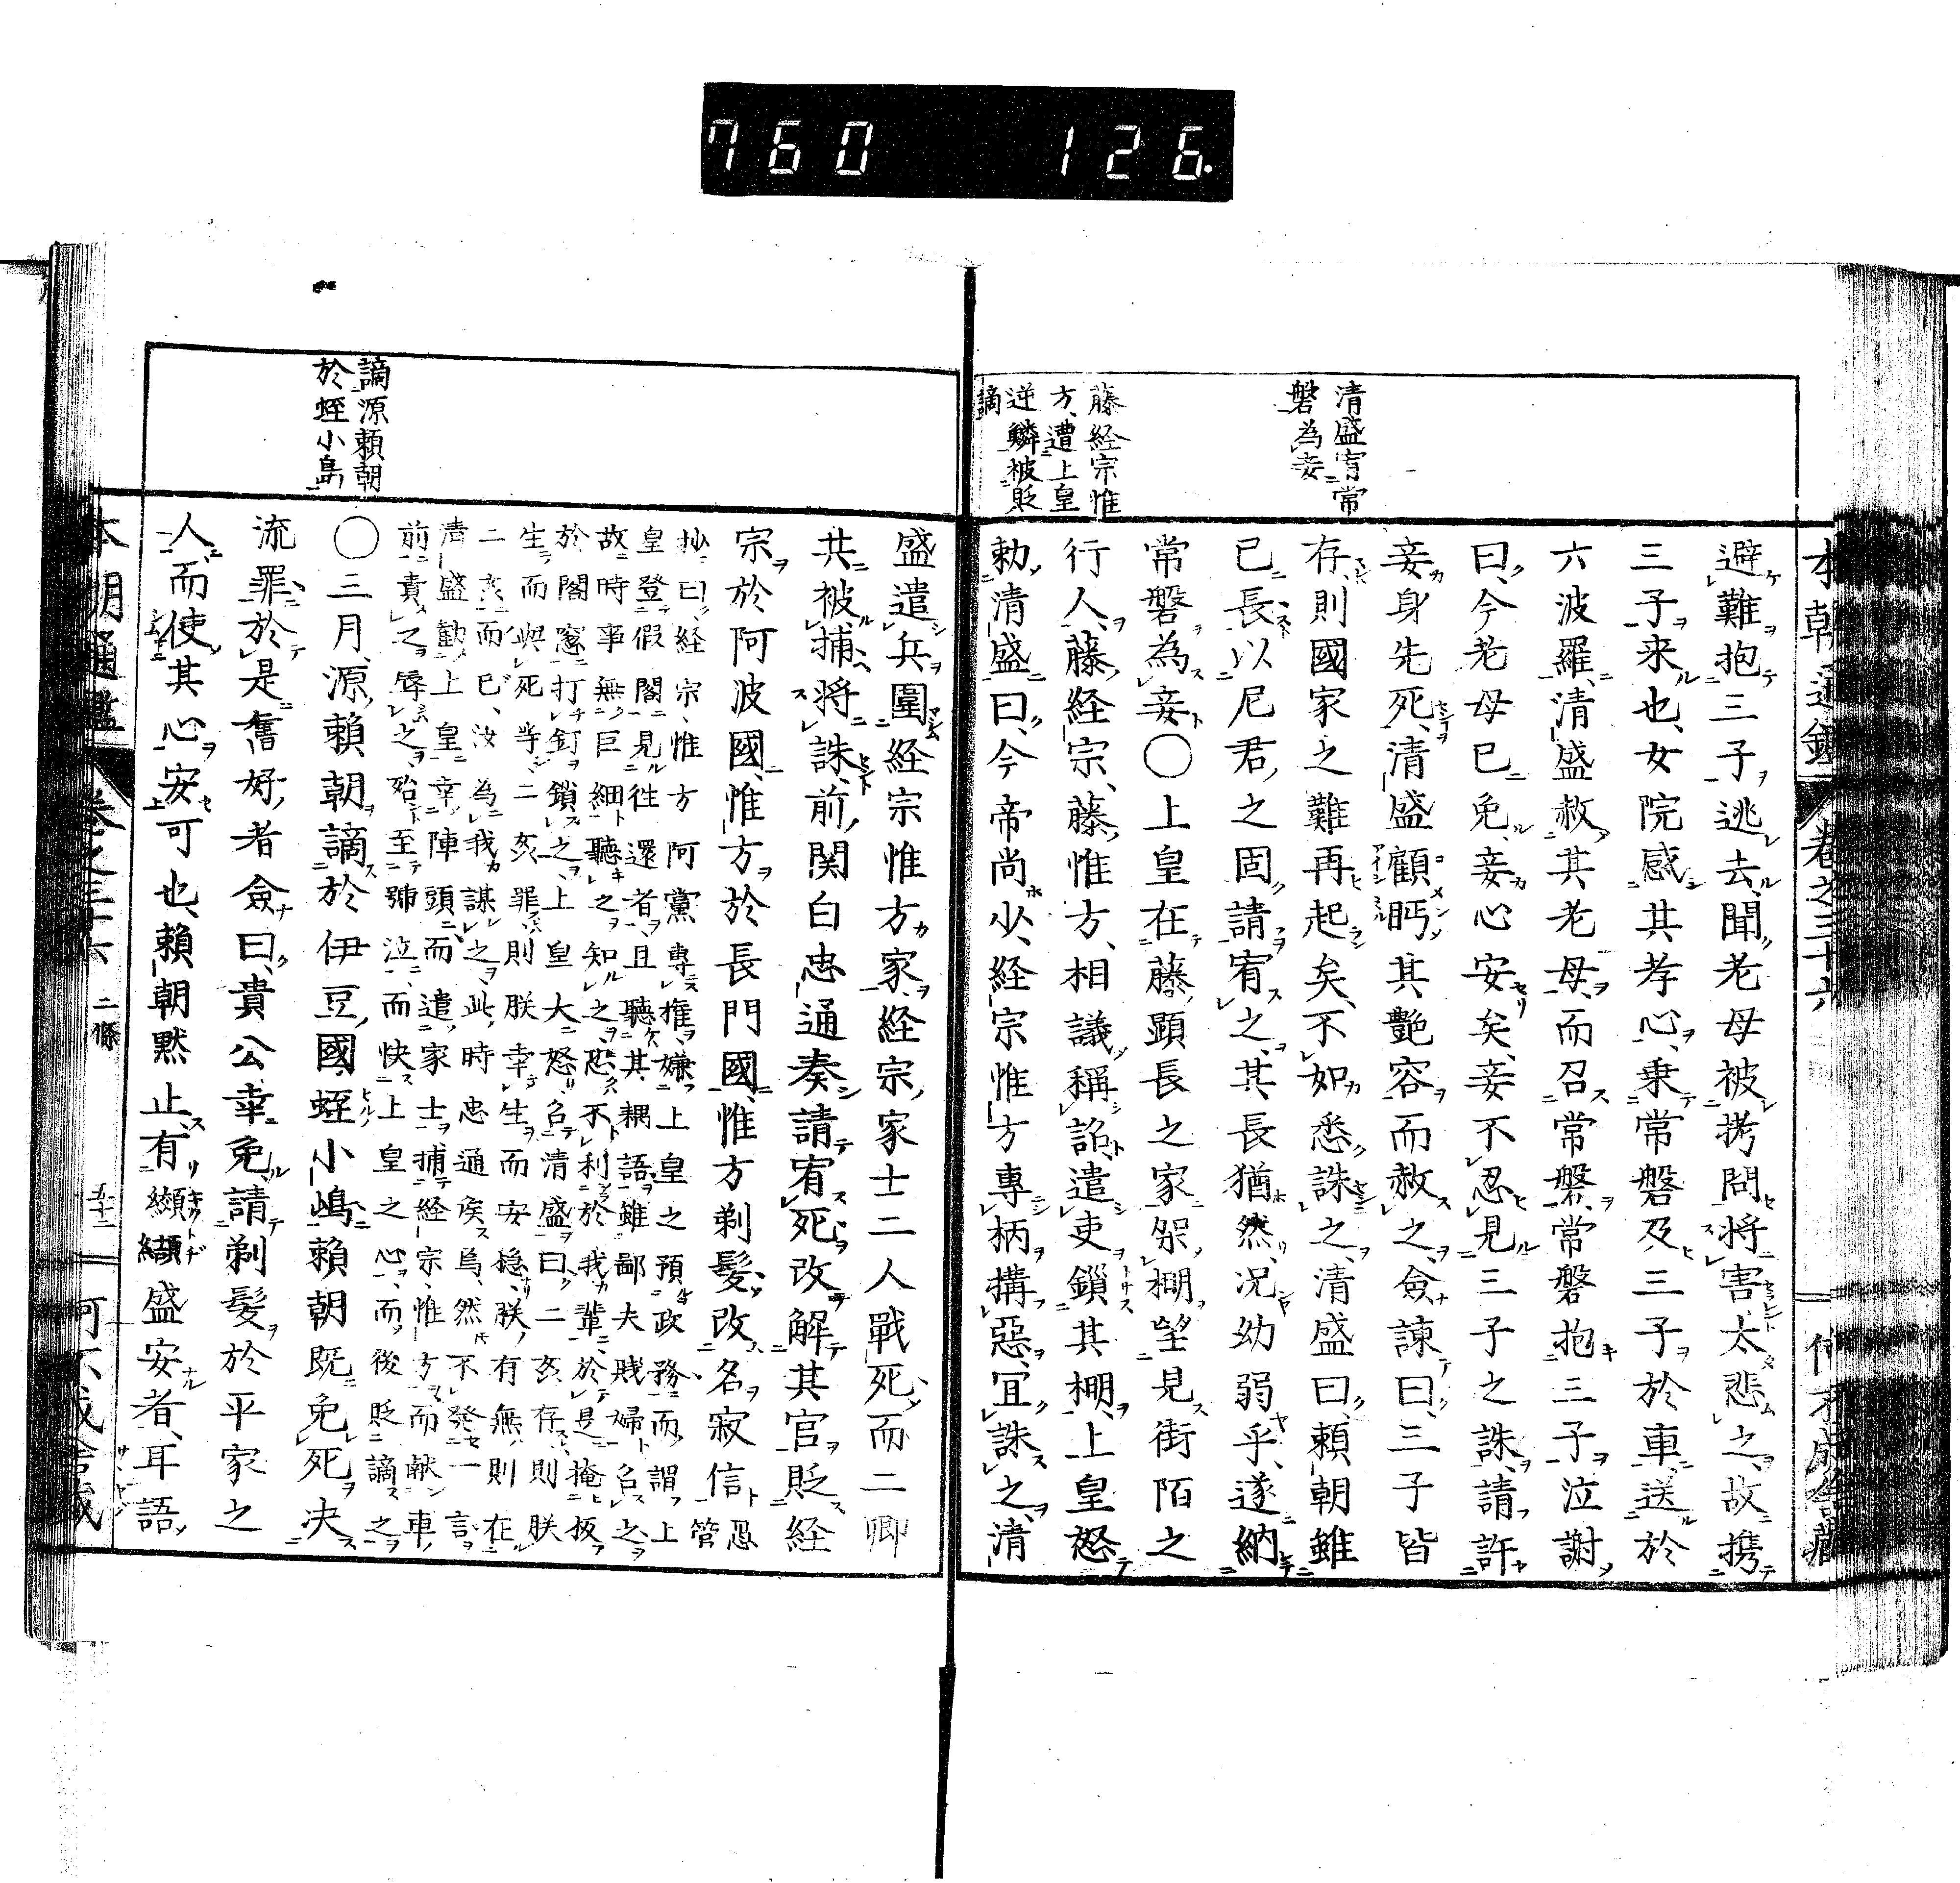 760 126.
本朝通鑑 卷之三十六
清盛宥常
磐為妾
藤経宗惟
方、遭上皇
逆鱗被貶
謫
避難抱三子逃去、聞老母被拷問将害、太悲之、故携
三子来也、女院感其孝心、乗常磐及三子於車、送於
六波羅、清盛赦其老母、而召常磐、常磐抱三子泣謝
曰、今老母已免、妾心安矣、妾不忍見三子之誅、請許
妾身先死、清盛顧眄其艶容而赦之、僉諫曰、三子皆
存、則國家之難再起矣、不如悉誅之、清盛曰、頼朝雖
已長以尼君之固請宥之、其長猶然、况幼弱乎、遂納
常磐為妾○上皇在藤顕長之家架棚望見街陌之
行人、藤経宗、藤惟方、相議稱詔、遣吏鎖其棚、上皇怒
勅清盛曰、今帝尚少、経宗惟方專柄搆惡、宜誅之、清
謫源頼朝
於蛭小島
盛遣兵圍経宗惟方家、経宗家士二人戰死、而二卿
共被捕将誅、前関白忠通奏請宥死改解其官貶経
宗於阿波國、惟方於長門國、惟方剃髪、改名寂信 愚管
抄曰、経宗、惟方阿黨專権、嫌上皇之預政務、而謂上
皇登假閣見往還者、且聽其耦語、雖鄙夫賎婦召之
故時事無巨細聽之知之、恐不利於我輩、於是掩扱
於閣窓打釘鎖之、上皇大怒召清盛曰、二亥存、則朕
生、而與死当、二亥罪、則朕幸生而安穏、朕有無則在
二亥而已、汝為我謀之、此時忠通矦焉、然不発一言
清盛勧上皇幸陣頭、而遣家士捕経宗、惟方而献車
前責之辱之、殆至號泣、而快上皇之心、而後貶謫之
○三月、源頼朝謫於伊豆國蛭小嶋、頼朝既免死决
流罪、於是舊好者僉曰、貴公幸免、請剃髪於平家之
人、而使其心安可也、頼朝黙止、有纐纈盛安者、耳語
本朝通鑑 卷之三十六 二條 五十二